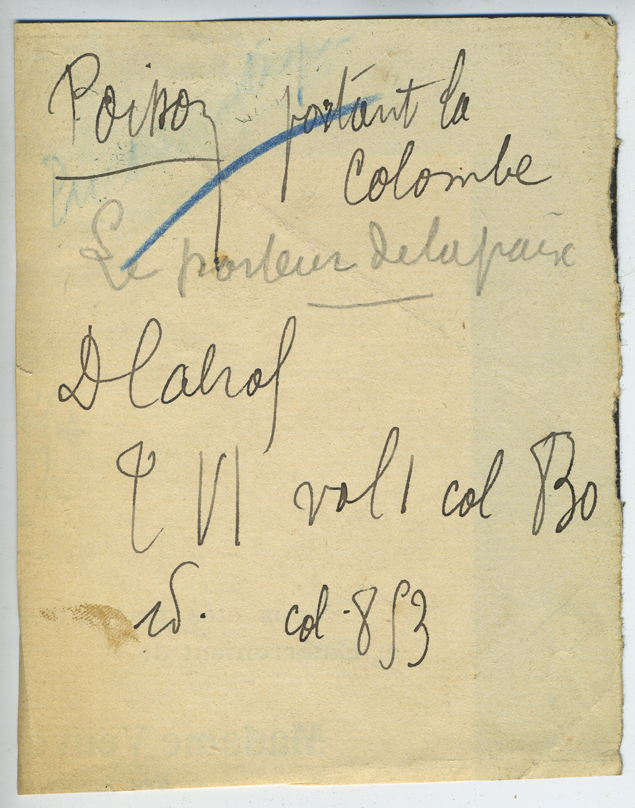 Poisson portant la
colombe
Le porteur de la paix
D Cabrol
T VI vol 1 col 80
id. col. 853